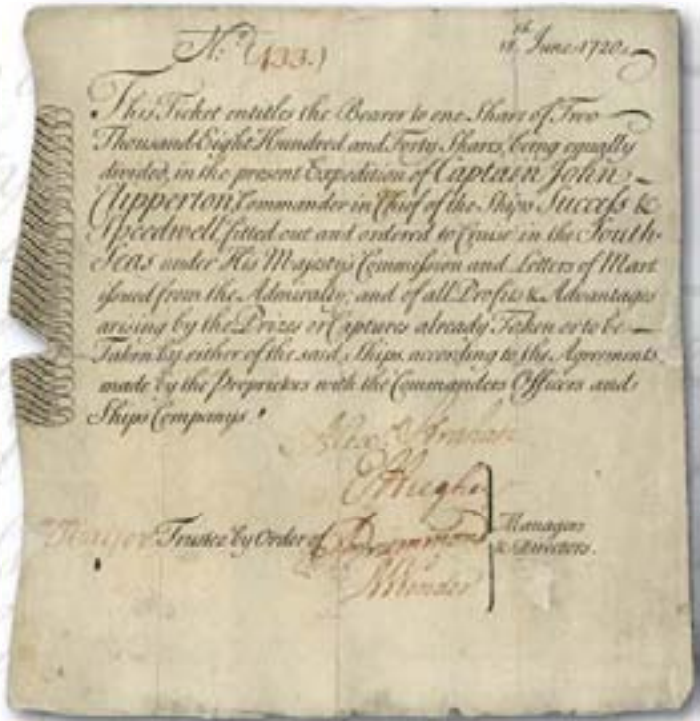 N.º (133.)
11.th June 1720.
This Ticket entitles the Bearer to one Share of Two
Thousand Eight Hundred and Forty Shares, being equally
divided, in the present Expedition of Captain John
Clipperton, Commander in Chief of the Ships Succefs &
Speedwell, fitted out and ordered to Cruise in the South-
Seas under His Majestys Commission and Letters of Mart
issued from the Admiralty, and of all Profits & Advantages
arising by the Prizes or Captures already Taken or to be
Taken by either of the said Ships, according to the Agreements
made by the Proprietors with the Commanders Officers and
Ships Companys.
Hughes
Trustee by Order of Drummond
Managers
& Directors.